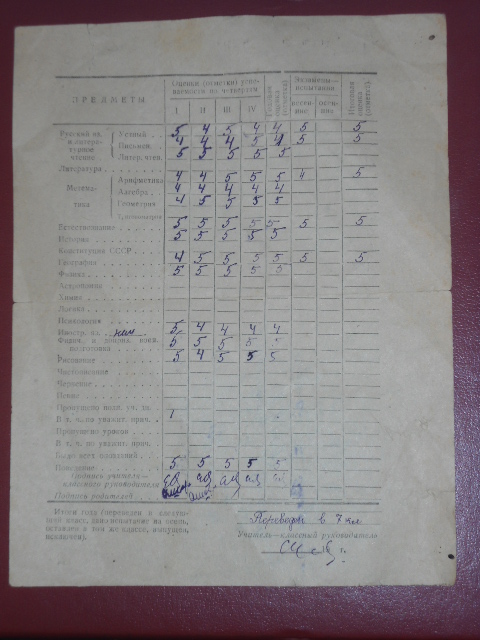 ПРЕДМЕТЫ Оценки (отметки) успеваемости по четвертям Экзамены—испытания
I II III IV весенние осенние
Русский яз. и литературное чтение Устный 5 4 5 4 4 5 5
Письмен. 4 4 4 5 4 5 5
Литер. чтен. 5 5 5 5 5
Литература
Математика Арифметика 4 4 5 5 5 4 5
Алгебра 4 4 4 4 4
Геометрия 4 5 5 5 5
Тригонометрия
Естествознание 5 5 5 5 5 5 5
История 5 5 5 5 5
Конституция СССР
География 4 5 5 5 5 5 5
Физика 5 5 5 5 5
Астрономия
Химия
Логика
Психология
Иностр. яз. нем 5 4 4 4 4
Физич. и доприз. воен. подготовка 5 5 5 5 5
Рисование 5 4 5 5 5
Чистописание
Черчение
Пение
Пропущено
В т. ч. по уважит. прич.
Пропущено уроков
В т. ч. по уважит. прич.
Было всех опозданий
Поведение 5 5 5 5 5
Подпись учителя—классного руководителя
Подпись родителей
Итоги года (переведен в следующий класс, дано испытание на осень, оставлен в том же классе, выпущен, исключен).
Переведён в 7 кл
Учитель—классный руководитель